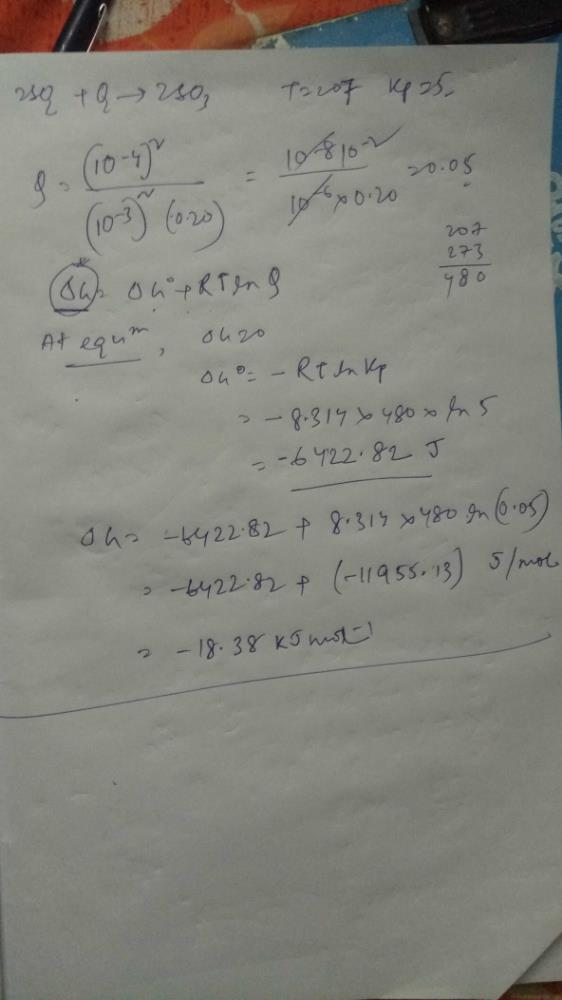 2SO₂ + O₂ → 2SO₃ T=207 Kp=5.
Q = (10⁻⁴)² / (10⁻³)² (0.20) = 10⁻⁸ 10⁻² / 10⁻⁶ × 0.20 = 0.05
207
273
480
ΔG = ΔG° + RT ln Q
At equᵐ, ΔG=0
ΔG° = - RT ln Kp
= -8.314 × 480 × ln 5
= -6422.82 J
ΔG = -6422.82 + 8.314 × 480 ln (0.05)
= -6422.82 + (-11955.13) J/mol
= -18.38 KJ mol⁻¹